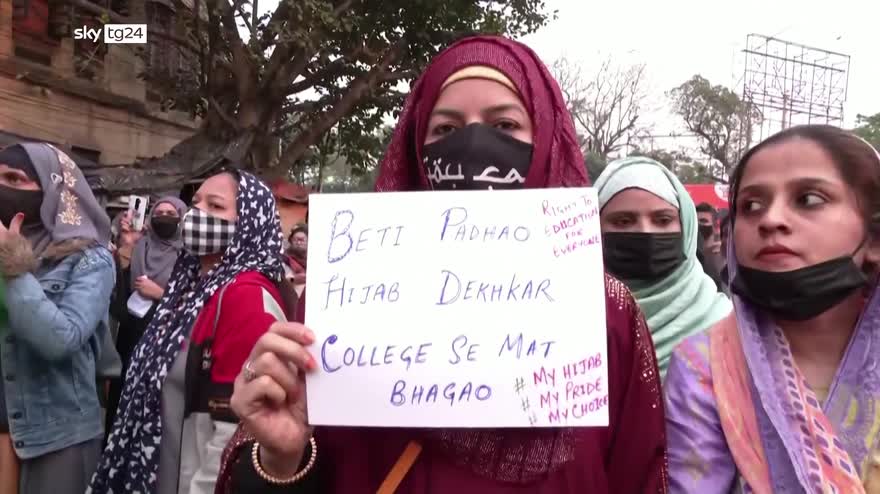 sky tg24
BETI PADHAO
HIJAB DEKHKAR
COLLEGE SE MAT
BHAGAO
RIGHT TO
EDUCATION
FOR
EVERYONE
# MY HIJAB
# MY PRIDE
# MY CHOICE